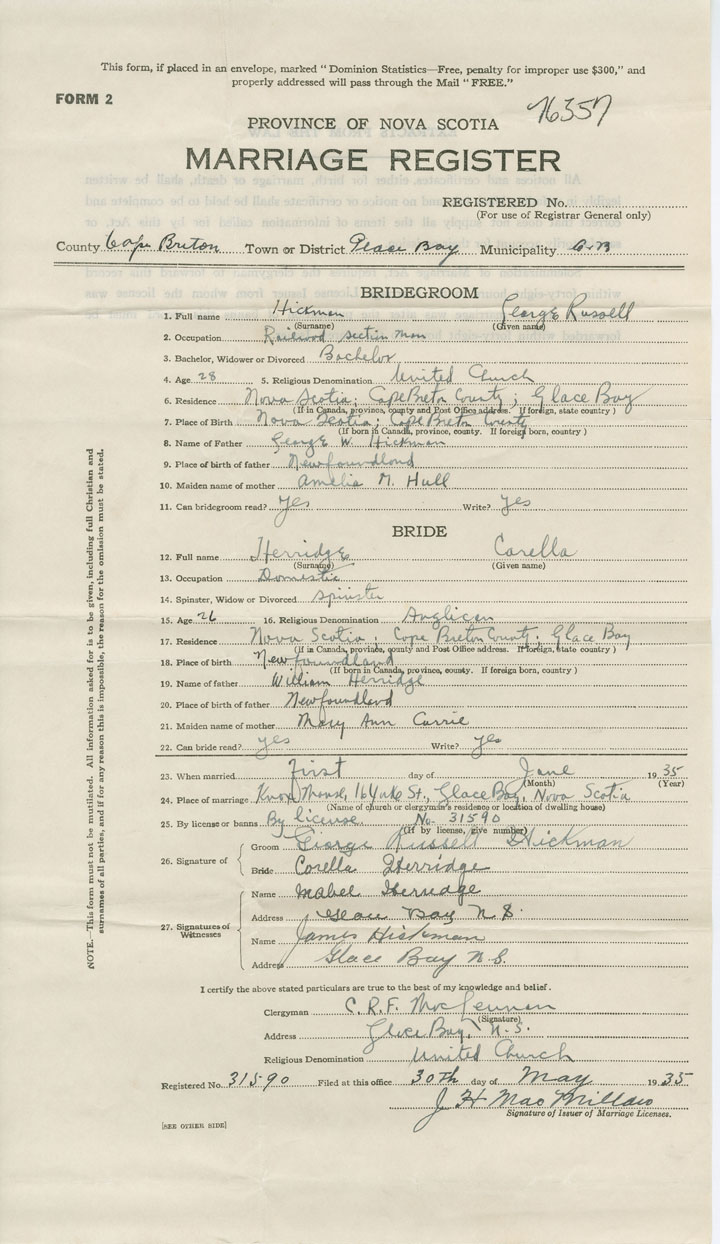 This form, if placed in an envelope, marked "Dominion Statistics—Free, penalty for improper use $300," and
properly addressed will pass through the Mail "FREE."
FORM 2
76357
PROVINCE OF NOVA SCOTIA
MARRIAGE REGISTER
REGISTERED No.
(For use of Registrar General only)
County Cape Breton Town or District Glace Bay Municipality C.B.
BRIDEGROOM
1. Full name Hickman George Russell
(Surname) (Given name)
2. Occupation Railroad section man
3. Bachelor, Widower or Divorced Bachelor
4. Age 28 5. Religious Denomination United Church
6. Residence Nova Scotia; Cape Breton County; Glace Bay
(If in Canada, province, county and Post Office address. If foreign, state country)
7. Place of Birth Nova Scotia; Cape Breton County
(If born in Canada, province, county. If foreign born, country)
8. Name of Father George W. Hickman
9. Place of birth of father Newfoundland
10. Maiden name of mother Amelia M. Hull
11. Can bridegroom read? Yes Write? Yes
BRIDE
12. Full name Herridge Corella
(Surname) (Given name)
13. Occupation Domestic
14. Spinster, Widow or Divorced Spinster
15. Age 26 16. Religious Denomination Anglican
17. Residence Nova Scotia; Cape Breton County; Glace Bay
(If in Canada, province, county and Post Office address. If foreign, state country)
18. Place of birth Newfoundland
(If born in Canada, province, county. If foreign born, country)
19. Name of father William Herridge
20. Place of birth of father Newfoundland
21. Maiden name of mother Mary Ann Currie
22. Can bride read? yes Write? yes
23. When married First day of June 1935
(Month) (Year)
24. Place of marriage Knox Manse, St., Glace Bay, Nova Scotia
(Name of church or clergyman's residence or location of dwelling house)
25. By license or banns By license No. 31590
(If by license, give number)
26. Signature of
Groom George Russell Hickman
Bride Corella Herridge
27. Signatures of Witnesses
Name Mabel Herridge
Address Glace Bay N.S.
Name James Hickman
Address Glace Bay N.S.
I certify the above stated particulars are true to the best of my knowledge and belief.
Clergyman C. R. F. MacLennan
(Signature)
Address Glace Bay, N.S.
Religious Denomination United Church
Registered No. 31590 Filed at this office 30th day of May 1935
J H MacMillan
Signature of Issuer of Marriage Licenses.
[SEE OTHER SIDE]
NOTE.—This form must not be mutilated. All information asked for is to be given, including full Christian and
surnames of all parties, and if for any reason this is impossible, the reason for the omission must be stated.